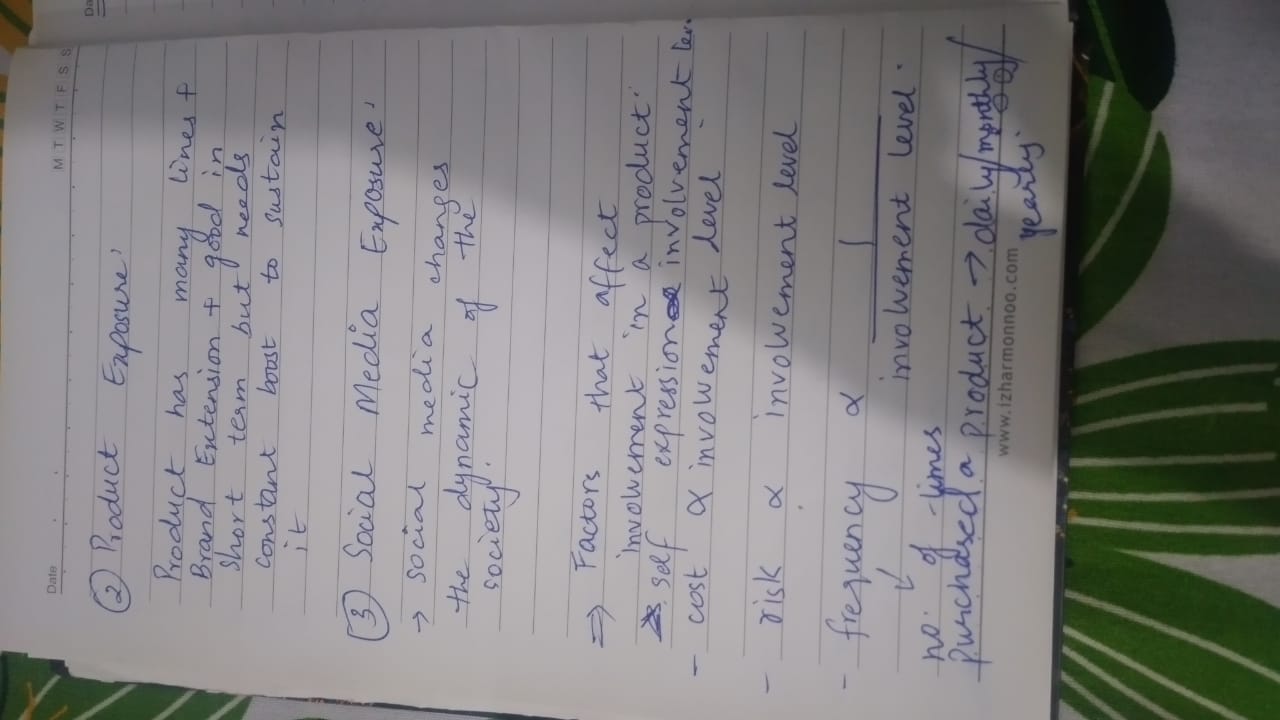 Date
M T W T F S S
Da
② Product Exposure:
Product has many lines +
Brand Extension + good in
short term but needs
constant boost to sustain
it
③ Social Media Exposure:
→ social media changes
the dynamic of the
society.
⇒ Factors that affect
involvement in a product.
self expression α involvement lev.
- cost α involvement level
- risk α involvement level
- frequency α 1
involvement level.
↓
no. of times
purchased a product → daily/monthly/
www.izharmonnoo.com
yearly.